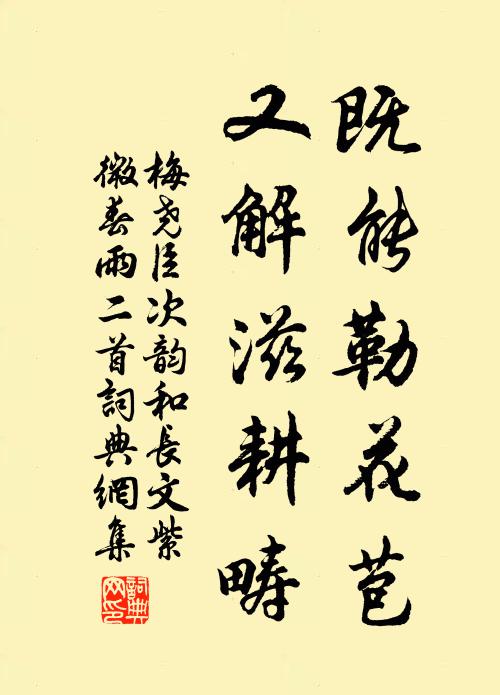 既能勒花苞
又解滋耕畴
梅尧臣次韵和长文紫
微春雨二首词典网集
词典
网印